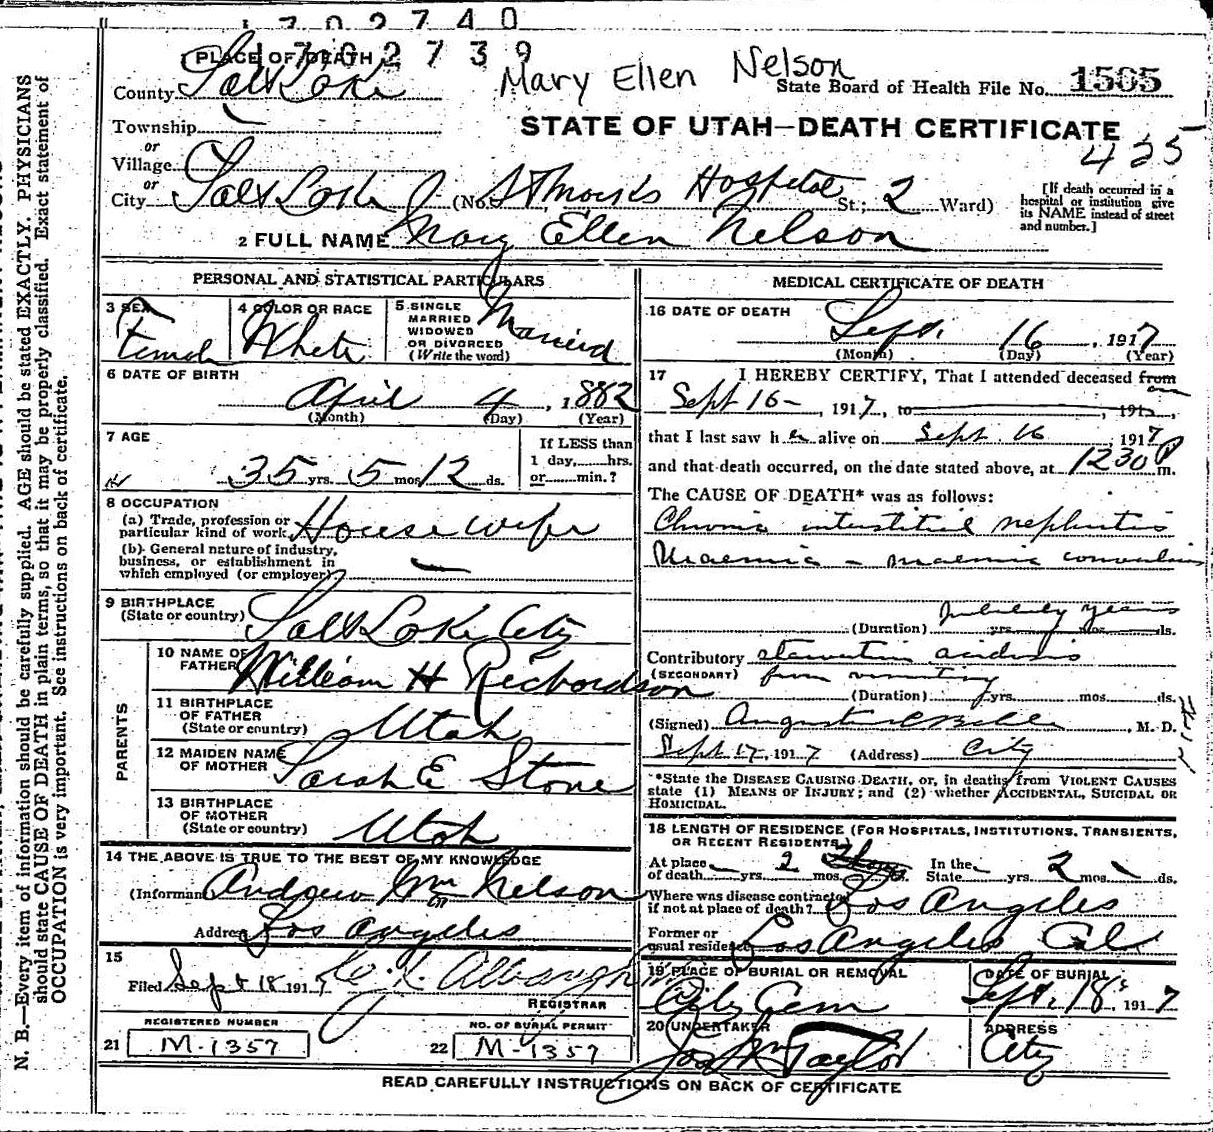 1702740
1702739
1 PLACE OF DEATH
Mary Ellen Nelson
County Salt Lake
State Board of Health File No. 1505
Township
STATE OF UTAH—DEATH CERTIFICATE
or
425
Village
or
City Salt Lake (No. St Marks Hospital St.; 2 Ward)
[If death occurred in a hospital or institution give its NAME instead of street and number.]
2 FULL NAME Mary Ellen Nelson
PERSONAL AND STATISTICAL PARTICULARS
3 SEX Female
4 COLOR OR RACE White
5 SINGLE MARRIED WIDOWED OR DIVORCED (Write the word) Married
6 DATE OF BIRTH
April 4, 1882
(Month) (Day) (Year)
7 AGE
35 yrs. 5 mos. 12 ds.
If LESS than 1 day, hrs. or min.?
8 OCCUPATION
(a) Trade, profession or particular kind of work House wife
(b) General nature of industry, business, or establishment in which employed (or employer)
9 BIRTHPLACE
(State or country) Salt Lake City
PARENTS
10 NAME OF FATHER William H Richardson
11 BIRTHPLACE OF FATHER (State or country) Utah
12 MAIDEN NAME OF MOTHER Sarah E Stone
13 BIRTHPLACE OF MOTHER (State or country) Utah
14 THE ABOVE IS TRUE TO THE BEST OF MY KNOWLEDGE
(Informant) Andrew Wm Nelson
Address Los Angeles
15
Filed Sept 18 1917
REGISTRAR
REGISTERED NUMBER
21 M-1357
NO. OF BURIAL PERMIT
22 M-1357
MEDICAL CERTIFICATE OF DEATH
16 DATE OF DEATH
Sept. 16, 1917
(Month) (Day) (Year)
17 I HEREBY CERTIFY, That I attended deceased from on
Sept 16 -, 1917, to , 191 ,
that I last saw her alive on Sept. 16, 1917
and that death occurred, on the date stated above, at 1230 P m.
The CAUSE OF DEATH* was as follows:
Chronic interstitial nephritis
Uraemia - uraemic convulsions
(Duration) years yrs. mos. ds.
Contributory starvation acidosis
(SECONDARY) from vomiting
(Duration) yrs. mos. ds.
(Signed) M. D.
Sept 17, 1917 (Address) City
*State the DISEASE CAUSING DEATH, or, in deaths from VIOLENT CAUSES
state (1) MEANS OF INJURY; and (2) whether ACCIDENTAL, SUICIDAL OR
HOMICIDAL.
18 LENGTH OF RESIDENCE (FOR HOSPITALS, INSTITUTIONS, TRANSIENTS,
OR RECENT RESIDENTS.)
At place of death yrs. 2 mos. ds. In the State yrs. 2 mos. ds.
Where was disease contracted if not at place of death? Los Angeles
Former or usual residence Los Angeles Cal
19 PLACE OF BURIAL OR REMOVAL
City Cem
DATE OF BURIAL
Sept. 18, 1917
20 UNDERTAKER
Jos Wm Taylor
ADDRESS
City
READ CAREFULLY INSTRUCTIONS ON BACK OF CERTIFICATE
N. B.—Every item of information should be carefully supplied. AGE should be stated EXACTLY. PHYSICIANS
should state CAUSE OF DEATH in plain terms, so that it may be properly classified. Exact statement of
OCCUPATION is very important. See instructions on back of certificate.